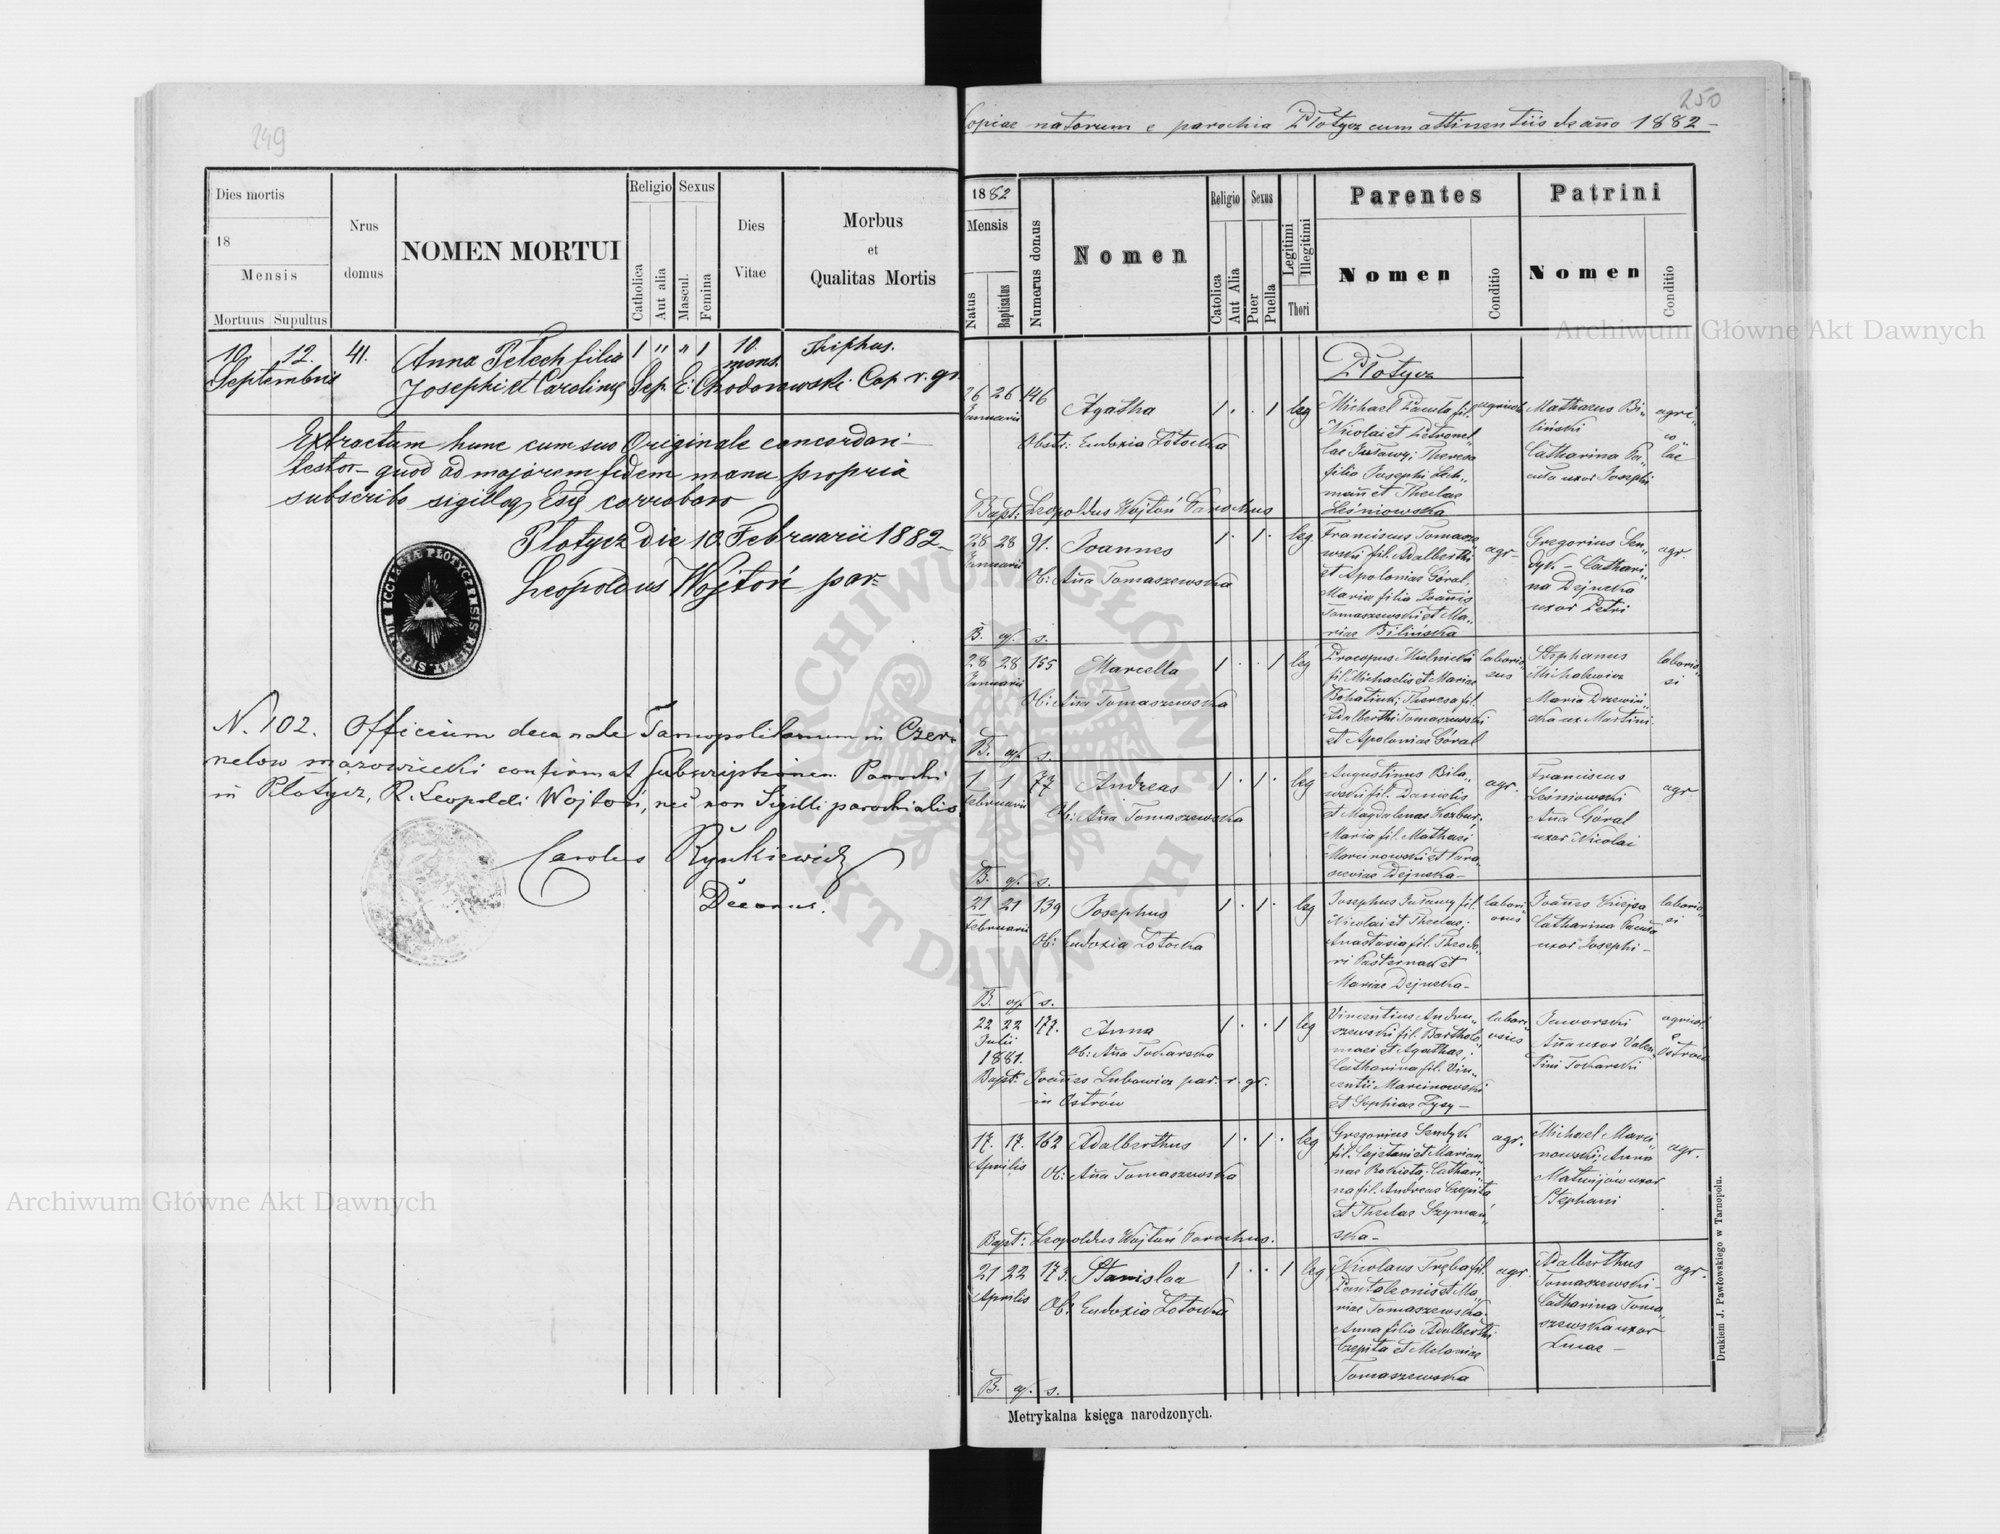 249
Dies mortis
18
Mensis
Mortuus
Supultus
Nrus
domus
NOMEN MORTUI
Religio
Catholica
Aut alia
Sexus
Mascul.
Femina
Dies
Vitae
Morbus
et
Qualitas Mortis
10 12. 41. Anna Pełech filia 1 " " 1 10. Triphus.
Septembris mens.
Josephi et Carolinae Sep. E: Chodorowski Cap. r. gr.
Extractum hunc cum suo Originale concordari
testor quod ad majorem fidem manu propria
subscribo sigilloq Ecclae corroboro
Płotycz die 10 Februarii 1882
Leopoldus Wojtoń par.
SIGILLUM ECCLESIAE PŁOTYCZENSIS RIT. LAT.
N. 102. Officium decanale Tarnopolitanum in Czer-
nelow mazowiecki confirmat subscriptionem Parochi
in Płotycz, R. Leopoldi Wojtoń, nec non Sigilli parochialis
Carolus Rynkiewicz
Decanus.
250
Copiae natorum e parochia Płotycz cum attinentiis de año 1882
1882
Mensis
Natus
Baptisatus
Numerus domus
Nomen
Religio
Catolica
Aut Alia
Sexus
Puer
Puella
Legitimi
Illegitimi
Thori
Parentes
Nomen
Conditio
Patrini
Nomen
Conditio
Płotycz
26 26 146 Agatha 1 . . 1 leg
Januarii
Obst: Eudoxia Łotocka
Bapt: Leopoldus Wojtoń Parochus
Michael Pacuła fil.
Nicolai et Petronel-
lae Juzawy; Theresa
filia Josephi Lech-
mañ et Theclae
Leśniowska
agricola
Mathaeus Bi-
liński
Catharina Pa-
cuła uxor Josephi
agri-
co-
lae
28 28 91. Joannes 1 . 1 . leg
Januarii
Ob: Aña Tomaszewska
B. q. s.
Franciscus Tomasze-
wski fil. Adalberthi
et Apoloniae Góral,
Maria filia Joañis
Tomaszewski et Ma-
riae Bilińska
agr.
Gregorius Sen-
dyk - Cathari-
na Dejneka
uxor Petri
agr.
28 28 155 Marcella 1 . . 1 leg
Januarii
Ob: Aña Tomaszewska
B. q. s.
Procopus Mielnicki
fil. Michaelis et Mariae
Bohatiuk; Theresa fil.
Adalberthi Tomaszewski
et Apoloniae Góral
laborio-
sus
Stephanus
Michalewicz
Maria Drzewiń-
ska ux Martini
laborio-
si
1 1 77 Andreas 1 . 1 . leg
Februarii
Ob: Aña Tomaszewska
B. q. s.
Augustinus Bila-
wski fil. Danielis
et Magdalenae Kozbur;
Maria fil. Mathaei
Marcinowski et Para-
sceviae Dejneka
agr.
Franciscus
Leśniowski
Aña Góral
uxor Nicolai
agr.
21 21 139 Josephus 1 . 1 . leg
Februarii
Ob: Eudoxia Łotocka
B. q. s.
Josephus Juzawy fil.
Nicolai et Theclae;
Anastasia fil. Theodo-
ri Pasternak et
Mariae Dejneka
labori-
osus
Joañes Kiejza
Catharina Pacuła
uxor Josephi
laborio-
si
22 22 177. Anna 1 . . 1 leg
Julii
1881.
Ob: Aña Tokarska
Bapt: Joañes Lubowicz par. r. gr.
in Ostrów
Vincentius Andru-
szewski fil. Bartholo-
maei et Agathae;
Catharina fil. Vin-
centii Marcinowski
et Sophiae Łysy
labori-
osus
Jaworski
Aña uxor Valen-
tini Tokarski
agricol
e
Ostrów
17. 17. 162 Adalberthus 1 . 1 . leg
Aprilis
Ob: Aña Tomaszewska
Bapt: Leopoldus Wojtoń Parochus.
Gregorius Sendyk
fil. Cajetani et Marian-
nae Rokieta; Cathari-
na fil. Andreae Czepita
et Theclae Szymań-
ska
agr.
Michael Marci-
nowski; Anna
Matwijów uxor
Stephani
agr.
21 22 173. Stanislaa 1 . . 1 leg
Aprilis
Ob: Eudoxia Łotocka
B. q. s.
Nicolaus Tręba fil.
Pantaleonis et Ma-
riae Tomaszewska
Anna filia Adalberthi
Czepita et Melaniae
Tomaszewska
agr.
Adalberthus
Tomaszewski
Catharina Toma-
szewska uxor
Lucae
agr.
Metrykalna księga narodzonych.
Drukiem J. Pawłowskiego w Tarnopolu.
Archiwum Główne Akt Dawnych
Archiwum Główne Akt Dawnych
ARCHIWUM GŁÓWNE AKT DAWNYCH